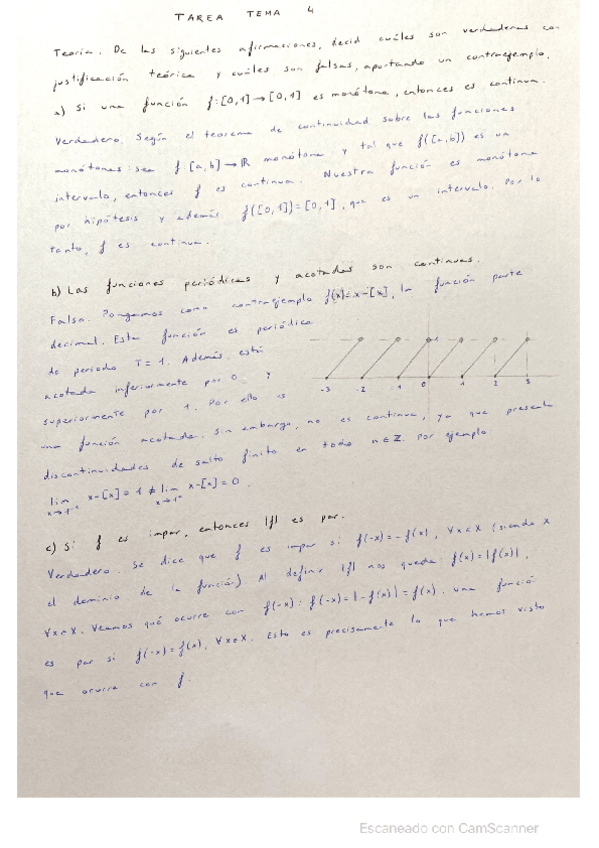 TAREA TEMA 4
Teoría. De las siguientes afirmaciones, decid cuáles son verdaderas con
justificación teórica y cuáles son falsas, aportando un contraejemplo.
a) Si una función f:[0,1]→[0,1] es monótona, entonces es continua.
Verdadero. Según el teorema de continuidad sobre las funciones
monótonas: sea f:[a,b]→ℝ monótona y tal que f([a,b]) es un
intervalo, entonces f es continua. Nuestra función es monótona
por hipótesis y además f([0,1])=[0,1], que es un intervalo. Por lo
tanto, f es continua.
b) Las funciones periódicas y acotadas son continuas.
Falso. Pongamos como contraejemplo f(x)=x-[x], la función parte
decimal. Esta función es periódica
de periodo T=1. Además, está
acotada inferiormente por 0 y
superiormente por 1. Por ello es
una función acotada. Sin embargo, no es continua, ya que presenta
discontinuidades de salto finito en todo n∈ℤ. Por ejemplo
lim x-[x]=1 ≠ lim x-[x]=0.
x→1⁻ x→1⁺
-3 -2 -1 0 1 2 3
1
c) Si f es impar, entonces |f| es par.
Verdadero. Se dice que f es impar si f(-x)=-f(x), ∀x∈X (siendo X
el dominio de la función). Al definir |f| nos queda: f(x)=|f(x)|,
∀x∈X. Veamos qué ocurre con f(-x): f(-x)=|-f(x)|=f(x). Una función
es par si f(-x)=f(x), ∀x∈X. Esto es precisamente lo que hemos visto
que ocurre con f.
Escaneado con CamScanner